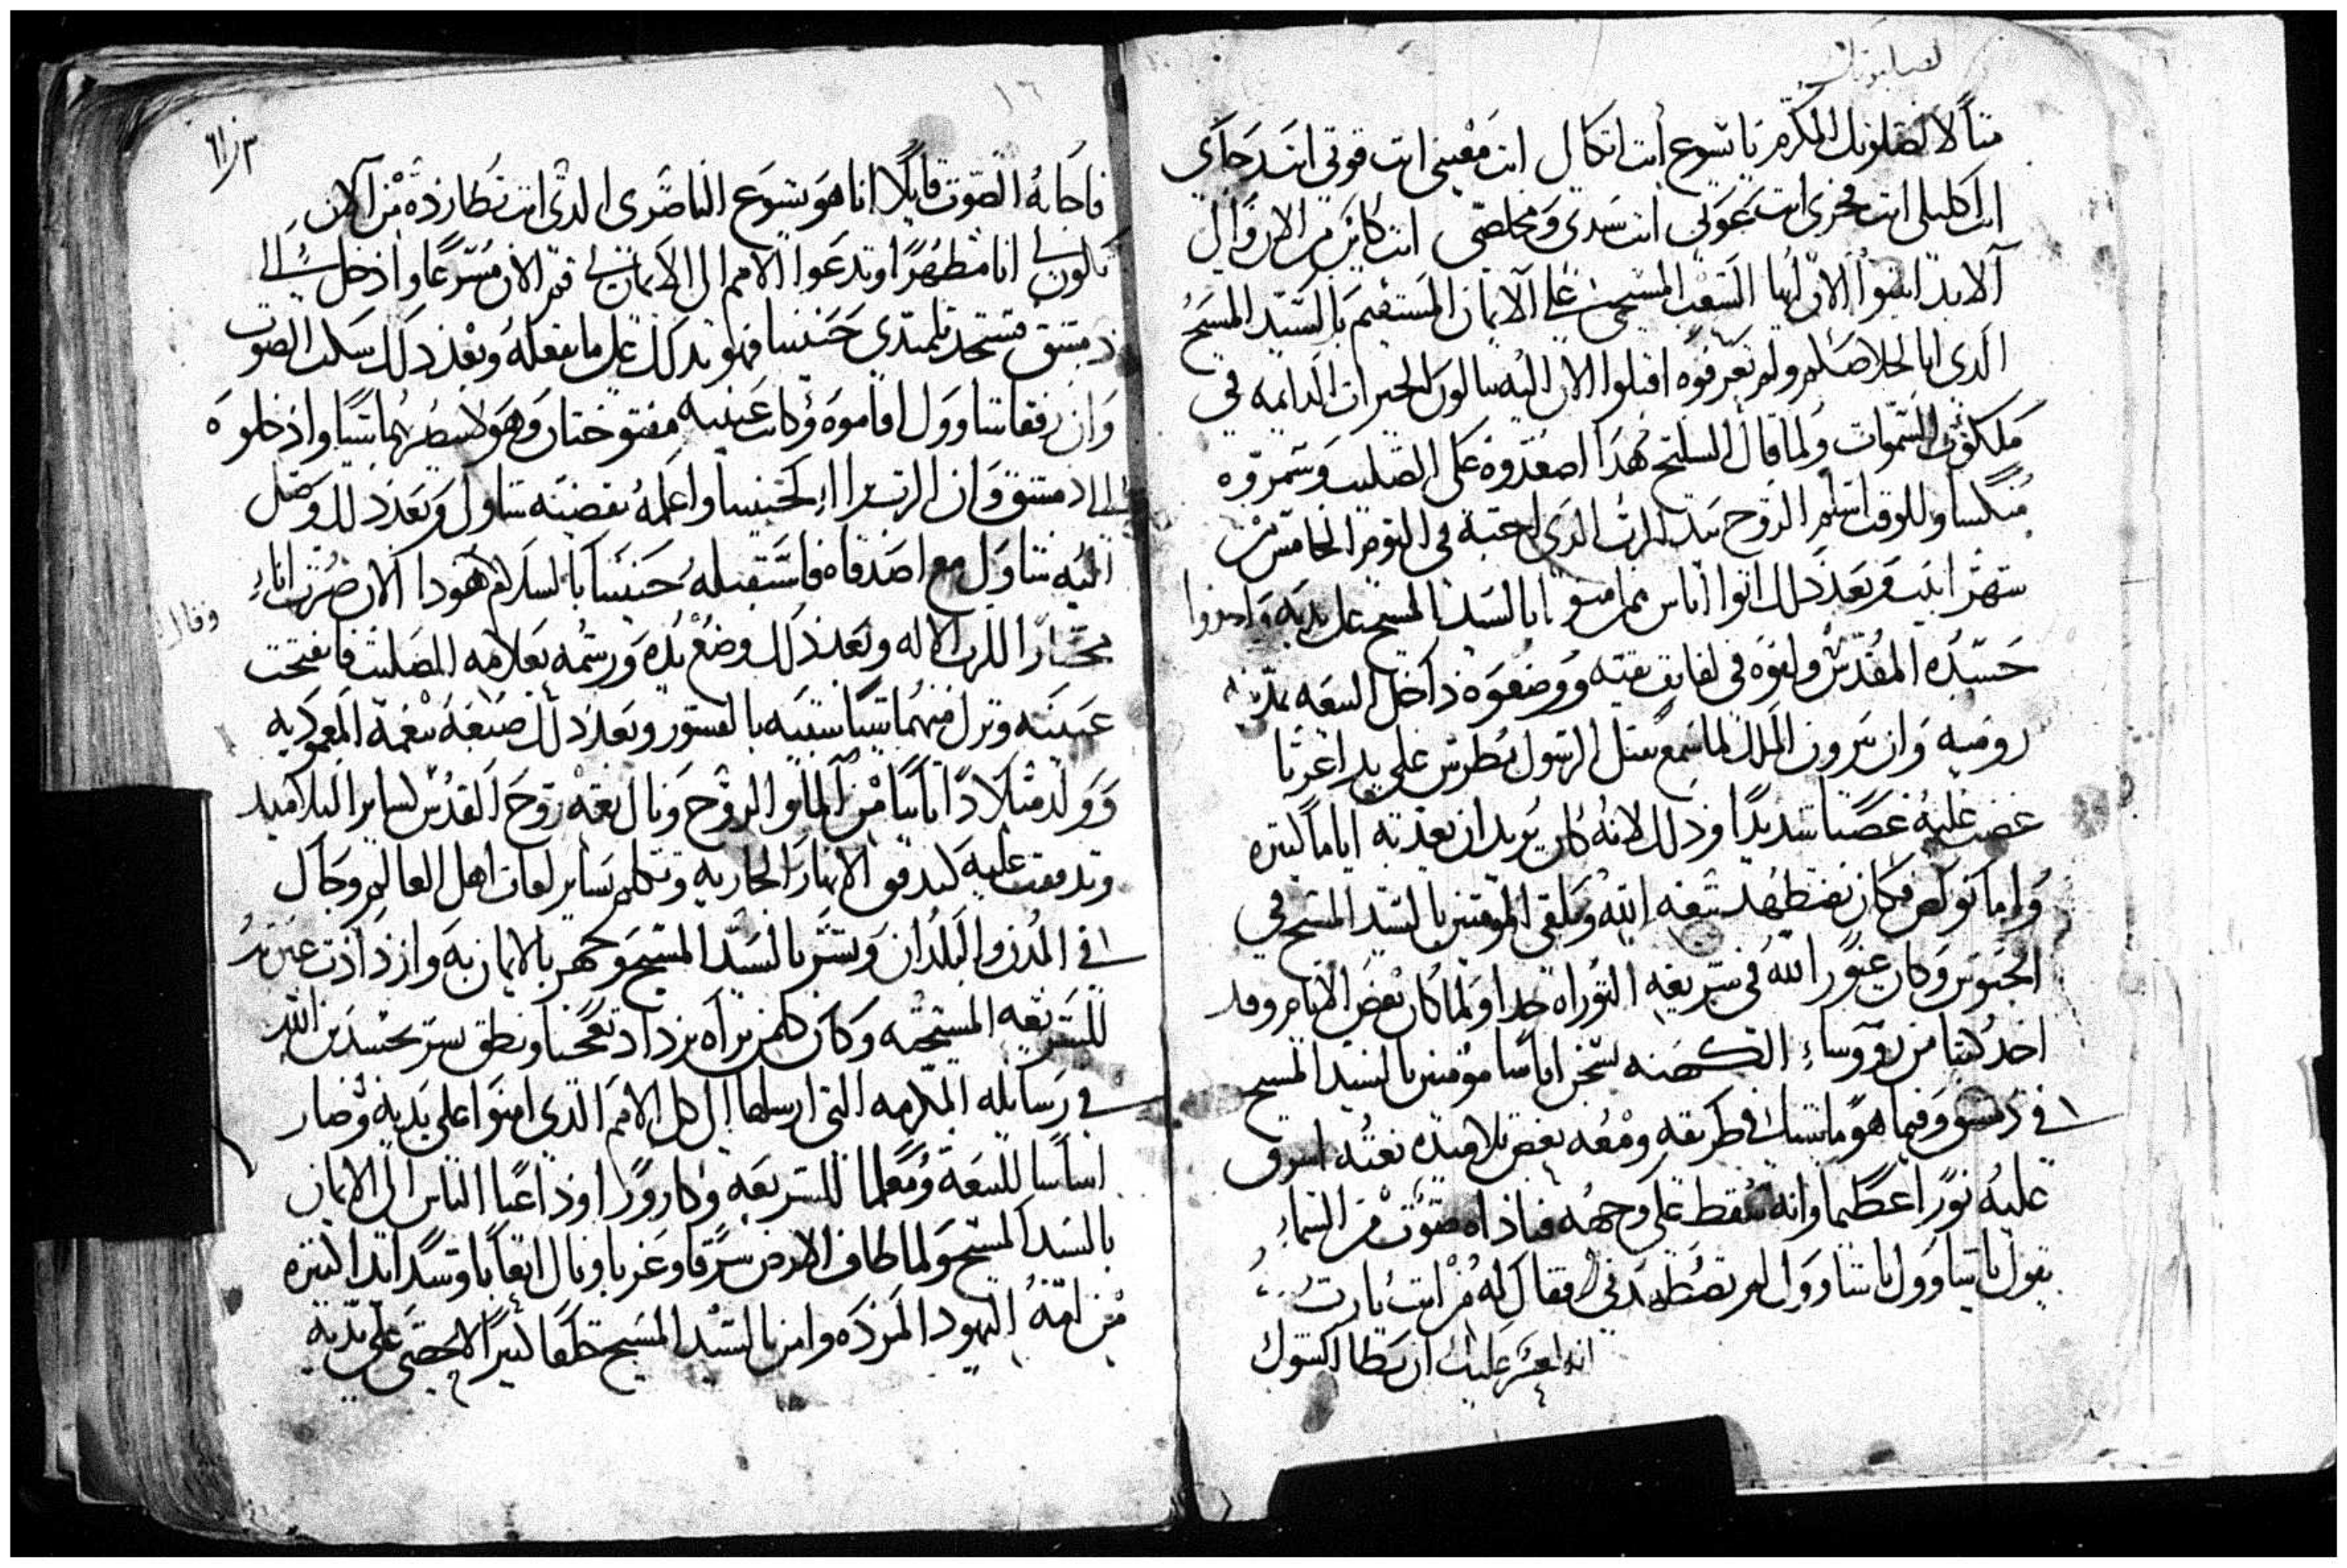 لصلبوتك
مثالا لصلبوتك المكرم يا يسوع أنت اتكالي انت معيني انت قوتي انت رجاي
انت اكليلي انت فخري انت عوني انت سيدي ومخلصي انت كاين من الان والي
آلابد اثبتوا الان ايها الشعب المسيحي علي الايمان المستقيم بالسيد المسيح
الدي اتا لخلاصكم ولم تعرفوه اقبلوا الان اليه تنالون الخيرات الدايمه في
ملكوت السموات ولما قال السليح هدا اصعدوه على الصليب وسمروه
منكسا وللوقت اسلم الروح بيد الرب الدي احبه في اليوم الخامس من
شهر ابيب وبعد دلك اتوا اناس ممن امنوا بالسيد المسيح علي يديه واخدوا
جسده المقدس ولفوه في لفايف نقيه ووضعوه داخل البيعه بمدينه
روميه وان نيرون الملك لما سمع بقتل الرسول بطرس علي يد اغربا
غضب عليه غضبا شديدا ودلك لانه كان يريد ان يعدبه اياما كتيره
واما بولص فكان يضطهد بيعه الله ويلقي المومنين بالسيد المسيح في
الحبوس وكان غيورا لله في شريعه التوراه جدا ولما كان بعض الايام وقد
اخد كتبا من رووساء الكهنه لسجن اناسا مومنين بالسيد المسيح
في دمشق وفيما هو ماشيا في طريقه ومعه بعض تلاميده بغته اشرق
عليه نورا عظيما وانه سقط علي وجهه فناداه صوت من السماء
يقول يا شاوول يا شاوول لم تضطهدني فقال له من انت يا رب
انه لعسر عليك ان تطا الشوك
١٦
فاجابه الصوت قايلا انا هو يسوع الناصري الدي انت تطارده من آلان
تكون لي انا مطهرا وتدعوا الامم الي الايمان بي قم الان مسرعا وادخل الي
دمشق فستجد تلميدي حنينيا فهو يدلك علي ما تفعله وبعد دلك سكت الصوت
وان رفقا شاوول اقاموه وكانت عينيه مفتوحتان وهو لا ينظر بهما شيا وادخلوه
الي دمشق وان الرب ترا اي لحنينيا واعلمه بقضيه شاول وبعد دلك وصل
اليه شاول مع اصدقاه فاستقبله حنينيا بالسلام هودا الان صرت اناء
وقال
مختارا للرب الاله وبعد دلك وضع يده ورشمه بعلامه الصليب فانفتحت
عينيه ونزل منهما شيا شبيه بالقشور وبعد دلك صبغه بنعمه المعموديه
وولد ميلادا تانيا من الماء والروح ونال نعمه روح القدس لساير التلاميد
وتدفقت عليه كتدفق الانهار الجاريه وتكلم بساير لغات اهل العالم وجال
في المدن والبلدان وبشر بالسيد المسيح وجهر بالايمان به وازدادت غيرته
للشريعه المسيحيه وكان كلمن يراه يزداد تعجبا ونطق بسر تجسد بن الله
في رسايله المكرمه التي ارسلها الي كل الامم الدي امنوا علي يديه وصار
اساسا للبيعه ومعلما للشريعه وكاروزا وداعيا الناس الي الايمان
بالسيد المسيح ولما طاف الارض شرقا وغربا ونال اتعابا وشدايدا كتيره
من لمة اليهود المرده وامن بالسيد المسيح خلقا كتيرا لا يحصي علي يديه